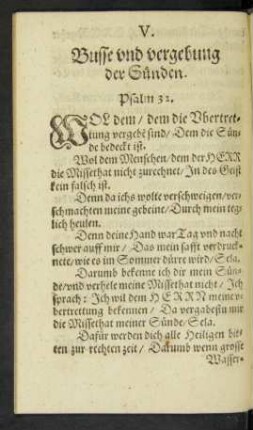 V.
Busse vnd vergebung
der Sünden.
Psalm 32.
WOL dem / dem die Vbertret-
tung vergebē sind / Dem die Sün-
de bedeckt ist.
Wol dem Menschen / dem der HERR
die Missethat nicht zurechnet / In des Geist
kein falsch ist.
Denn da ichs wolte verschweigen / ver-
schmachten meine gebeine / Durch mein teg
lich heulen.
Denn deine Hand war Tag vnd nacht
schwer auff mir / Das mein safft vordruck-
nete / wie es im Sommer dürre wird / Sela.
Darumb bekenne ich dir mein Sün-
de / vnd verhele meine Missethat nicht / Ich
sprach: Ich wil dem HERRN meine v-
bertrettung bekennen / Da vergabestu mir
die Missethat meiner Sünde / Sela.
Dafür werden dich alle Heiligen bit-
ten zur rechten zeit / Darumb wenn grosse
Wasser-